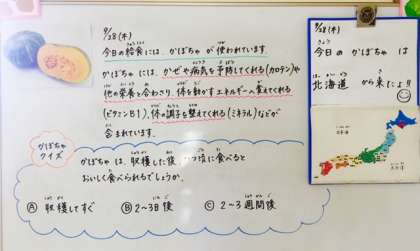 9/28(木)
今日の給食には、かぼちゃが使われています。
かぼちゃには、かぜや病気を予防してくれる(カロテン)や
他の栄養と合わさり、体を動かすエネルギーへ変えてくれる
(ビタミンB1)、体の調子を整えてくれる(ミネラル)などが
含まれています。
かぼちゃ
クイズ
かぼちゃは、収穫した後、いつ頃に食べると
おいしく食べられるでしょうか。
Ⓐ 収穫してすぐ Ⓑ 2~3日後 Ⓒ 2~3週間後
9/28(木)
今日のかぼちゃは
北海道から来たよ!!